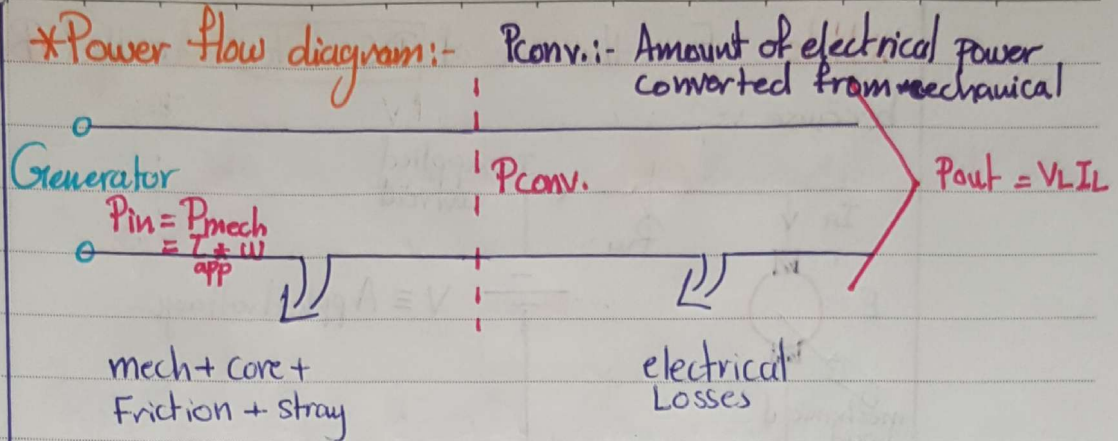 *Power flow diagram:-
Pconv.:- Amount of electrical power
converted from mechanical
Generator
Pin = Pmech
= τ * ω
app
Pconv.
Pout = VLIL
mech + core +
Friction + stray
electrical
Losses